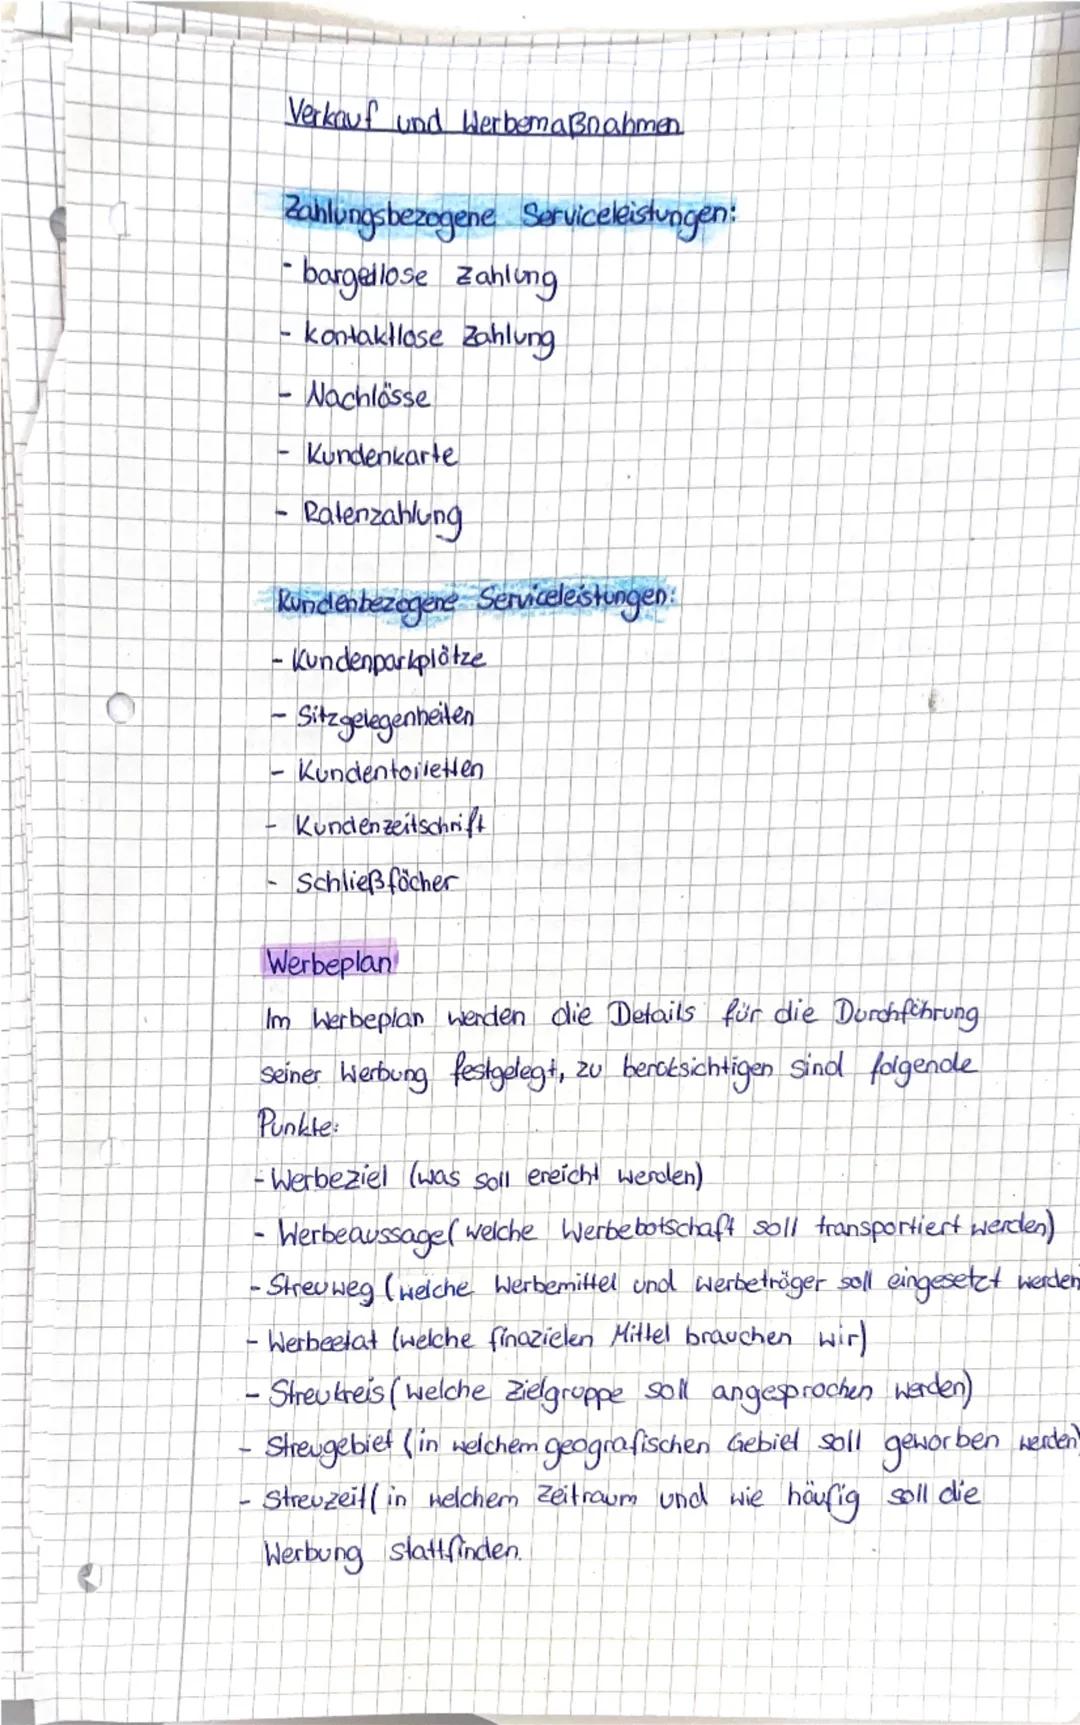 Verkauf und Werbemaßnahmen
Zahlungsbezogene Serviceleistungen:
- bargellose Zahlung
- kontaktlose Zahlung
- Nachlässe
- Kundenkarte
- Ratenzahlung
Kundenbezogene Serviceleistungen:
- Kundenparkplätze
- Sitzgelegenheiten
- Kundentoiletten
- Kundenzeitschrift
- Schließfächer
Werbeplan
Im Werbeplan werden die Details für die Durchführung
seiner Werbung festgelegt, zu berüksichtigen sind folgende
Punkte:
- Werbeziel (was soll ereicht werden)
- Werbeaussage (welche Werbebotschaft soll transportiert werden)
- Streuweg (welche Werbemittel und Werbeträger soll eingesetzt werden
- Werbeetat (welche finazielen Mittel brauchen wir)
- Streukreis (welche Zielgruppe soll angesprochen werden)
- Streugebiet (in welchem geografischen Gebiet soll geworben werden)
- Streuzeit (in welchem Zeitraum und wie häufig soll die
Werbung stattfinden.